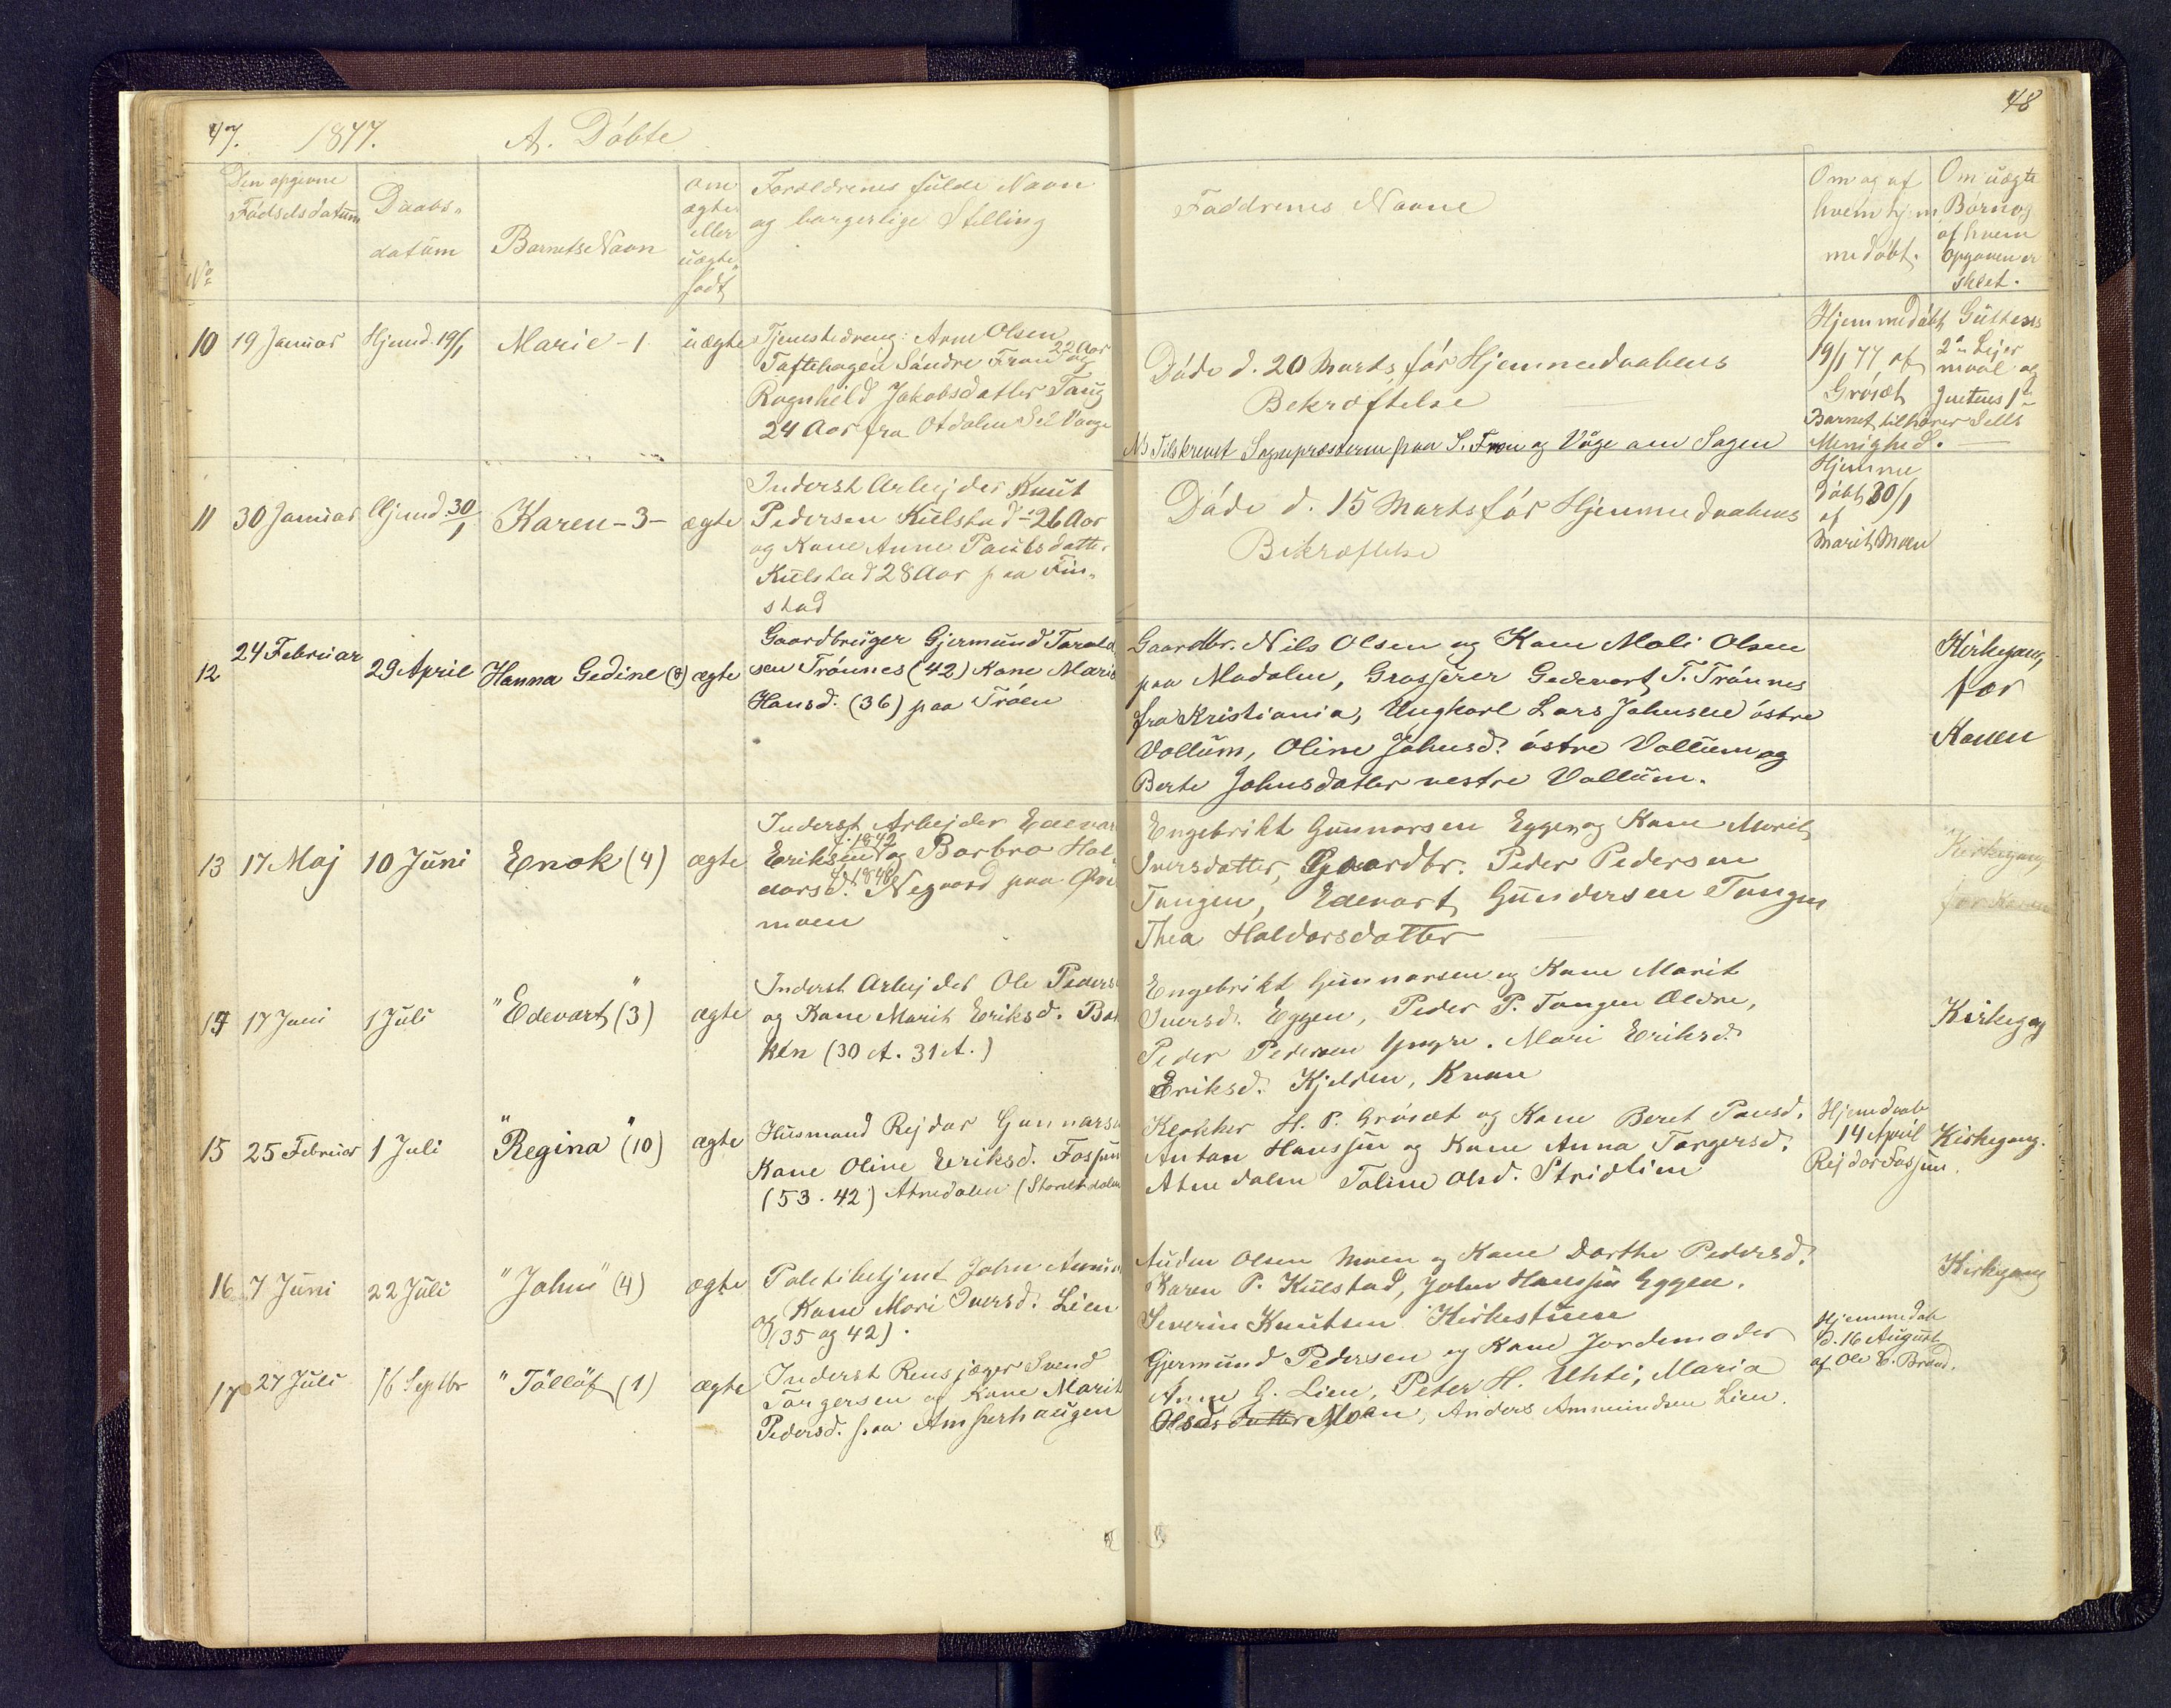 47. 1877. A. Döbte
48
No
Den opgivne
Födselsdatum
Daabs-
datum
Barnets Navn
om
ægte
eller
uægte
födt
Forældrenes fulde Navn
og borgerlige Stilling
Faddrenes Navne
Om og af
hvem hjem
medöbt.
Om uægte
Börn og
af hvem
Opgaven er
skeet.
10 19 Januar Hjemd. 19/1 Marie - 1 uægte
Tjenestedreng: Arne Olsen
22 Aar
Toftehagen Söndre Fron og
Ragnhild Jakobsdatter Taug
24 Aar fra Otdalen Sel Vaage
Döde d. 20 Marts för Hjemmedaabens
Bekræftelse
NB Tilskrevet Sognepræsterne paa S. Fron og Våge om Sagen
Hjemmedöbt
19/1 77 af
Grösæt
Barnet tilhører Sells
Menighed.
2den Lejer
maal og
Jentens 1ste
11 30 Januar Hjemd. 30/1 Karen - 3 - ægte
Inderst Arbejder Knut
Pedersen Kulstad - 26 Aar
og Kone Anne Paulsdatter
Kulstad 28 Aar paa Fin-
stad
Döde d. 15 Marts för Hjemmedaabens
Bekræftelse
Hjemme
döbt 30/1
af
Marit Moen
12 24 Februar 29 April Hanna Gedine (8) ægte
Gaardbruger Gjermund Tarald
sen Trönnes (42) Kone Marie
Hansd. (36) paa Tröen
Gaardbr. Nils Olsen og Kone Mali Olsen
paa Modalen, Grosserer Gedevart T. Trönnes
fra Kristiania, Ungkarl Lars Johnsen östre
Vollum, Oline Johnsd. östre Vollum og
Berte Johnsdatter vestre Vollum.
Kirkegang
for
Konen
13 17 Maj 10 Juni Enok (4) ægte
Inderst Arbejder Edevar
f. 1842
Eriksen og Barbro Hal-
f. 1848
dorsd. Negaard paa
moen
Engebrikt Gunnarsen Eggen og Kone Marit
Iversdatter, Gaardbr. Peder Pedersen
Tangen, Edevart Gundersen Tangen
Thea Haldorsdatter
Kirkegang
for Konen
14 17 Juni 1 Juli "Edevart" (3) ægte
Inderst Arbejder Ole Peders
og Kone Marit Eriksd. Bak
ken (30 A. 31 A.)
Engebrikt Gunnarsen og Kone Marit
Iversd. Eggen, Peder P. Tangen Ældre,
Peder Pedersen Yngre. Mari Eriksd.
Eriksd. Kjelden, Kroen
Kirkegag
15 25 Februar 1 Juli "Regina" (10) ægte
Husmand Rejdar Gunnarse
Kone Oline Eriksd. Fosjun
(53. 42) Atnedalen (Storelvdalen
Klokker H. P. Grösæt og Kone Beret Pausd.
Antan Hansjun og Kone Anna Targersd.
Atnedalen Taline Olsd. Stridlien
Hjemdaab
14 April
Rejdar Fosjun.
Kirkegang.
16 7 Juni 22 Juli "John" (4) ægte
Politibetjent John Amun
og Kone Mari Iversd. Lien
(35 og 42).
Auden Olsen Moen og Kone Dorthe Pedersd.
Karen P. Kulstad, John Hansjun Eggen.
Severin Knutsen Kirkestuen
Kirkegang
17 27 Juli 16 Septbr "Tollöf" (1) ægte
Inderst Rensjæger Svend
Torgersen og Kone Marit
Pedersd. paa Amperhaugen
Gjermund Pedersen og Kone Jordemoder
Anne G. Lien, Peter H. Uhti, Maria
Olsdsdatter Moen, Anders Ammundsen Lien.
Hjemmedab
d. 16 August
af Ole E. Brænd.